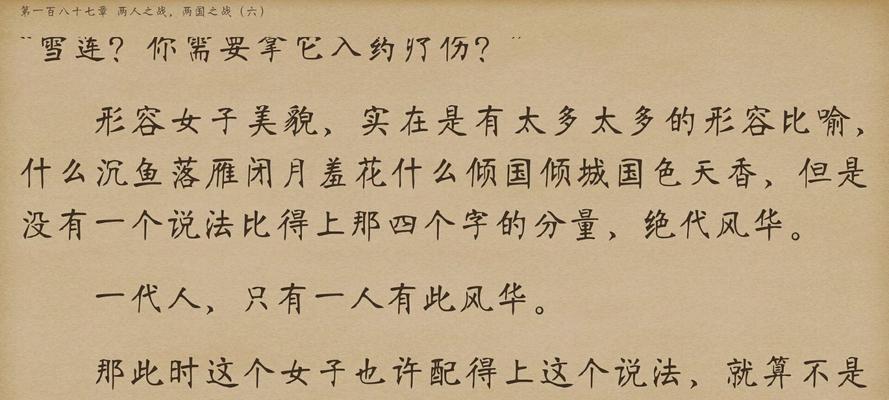 第一百八十七章 两人之战，两国之战（六）
“雪莲？你需要拿它入药疗伤？”
形容女子美貌，实在是有太多太多的形容比喻，
什么沉鱼落雁闭月羞花什么倾国倾城国色天香，但是
没有一个说法比得上那四个字的分量，绝代风华。
一代人，只有一人有此风华。
那此时这个女子也许配得上这个说法，就算不是